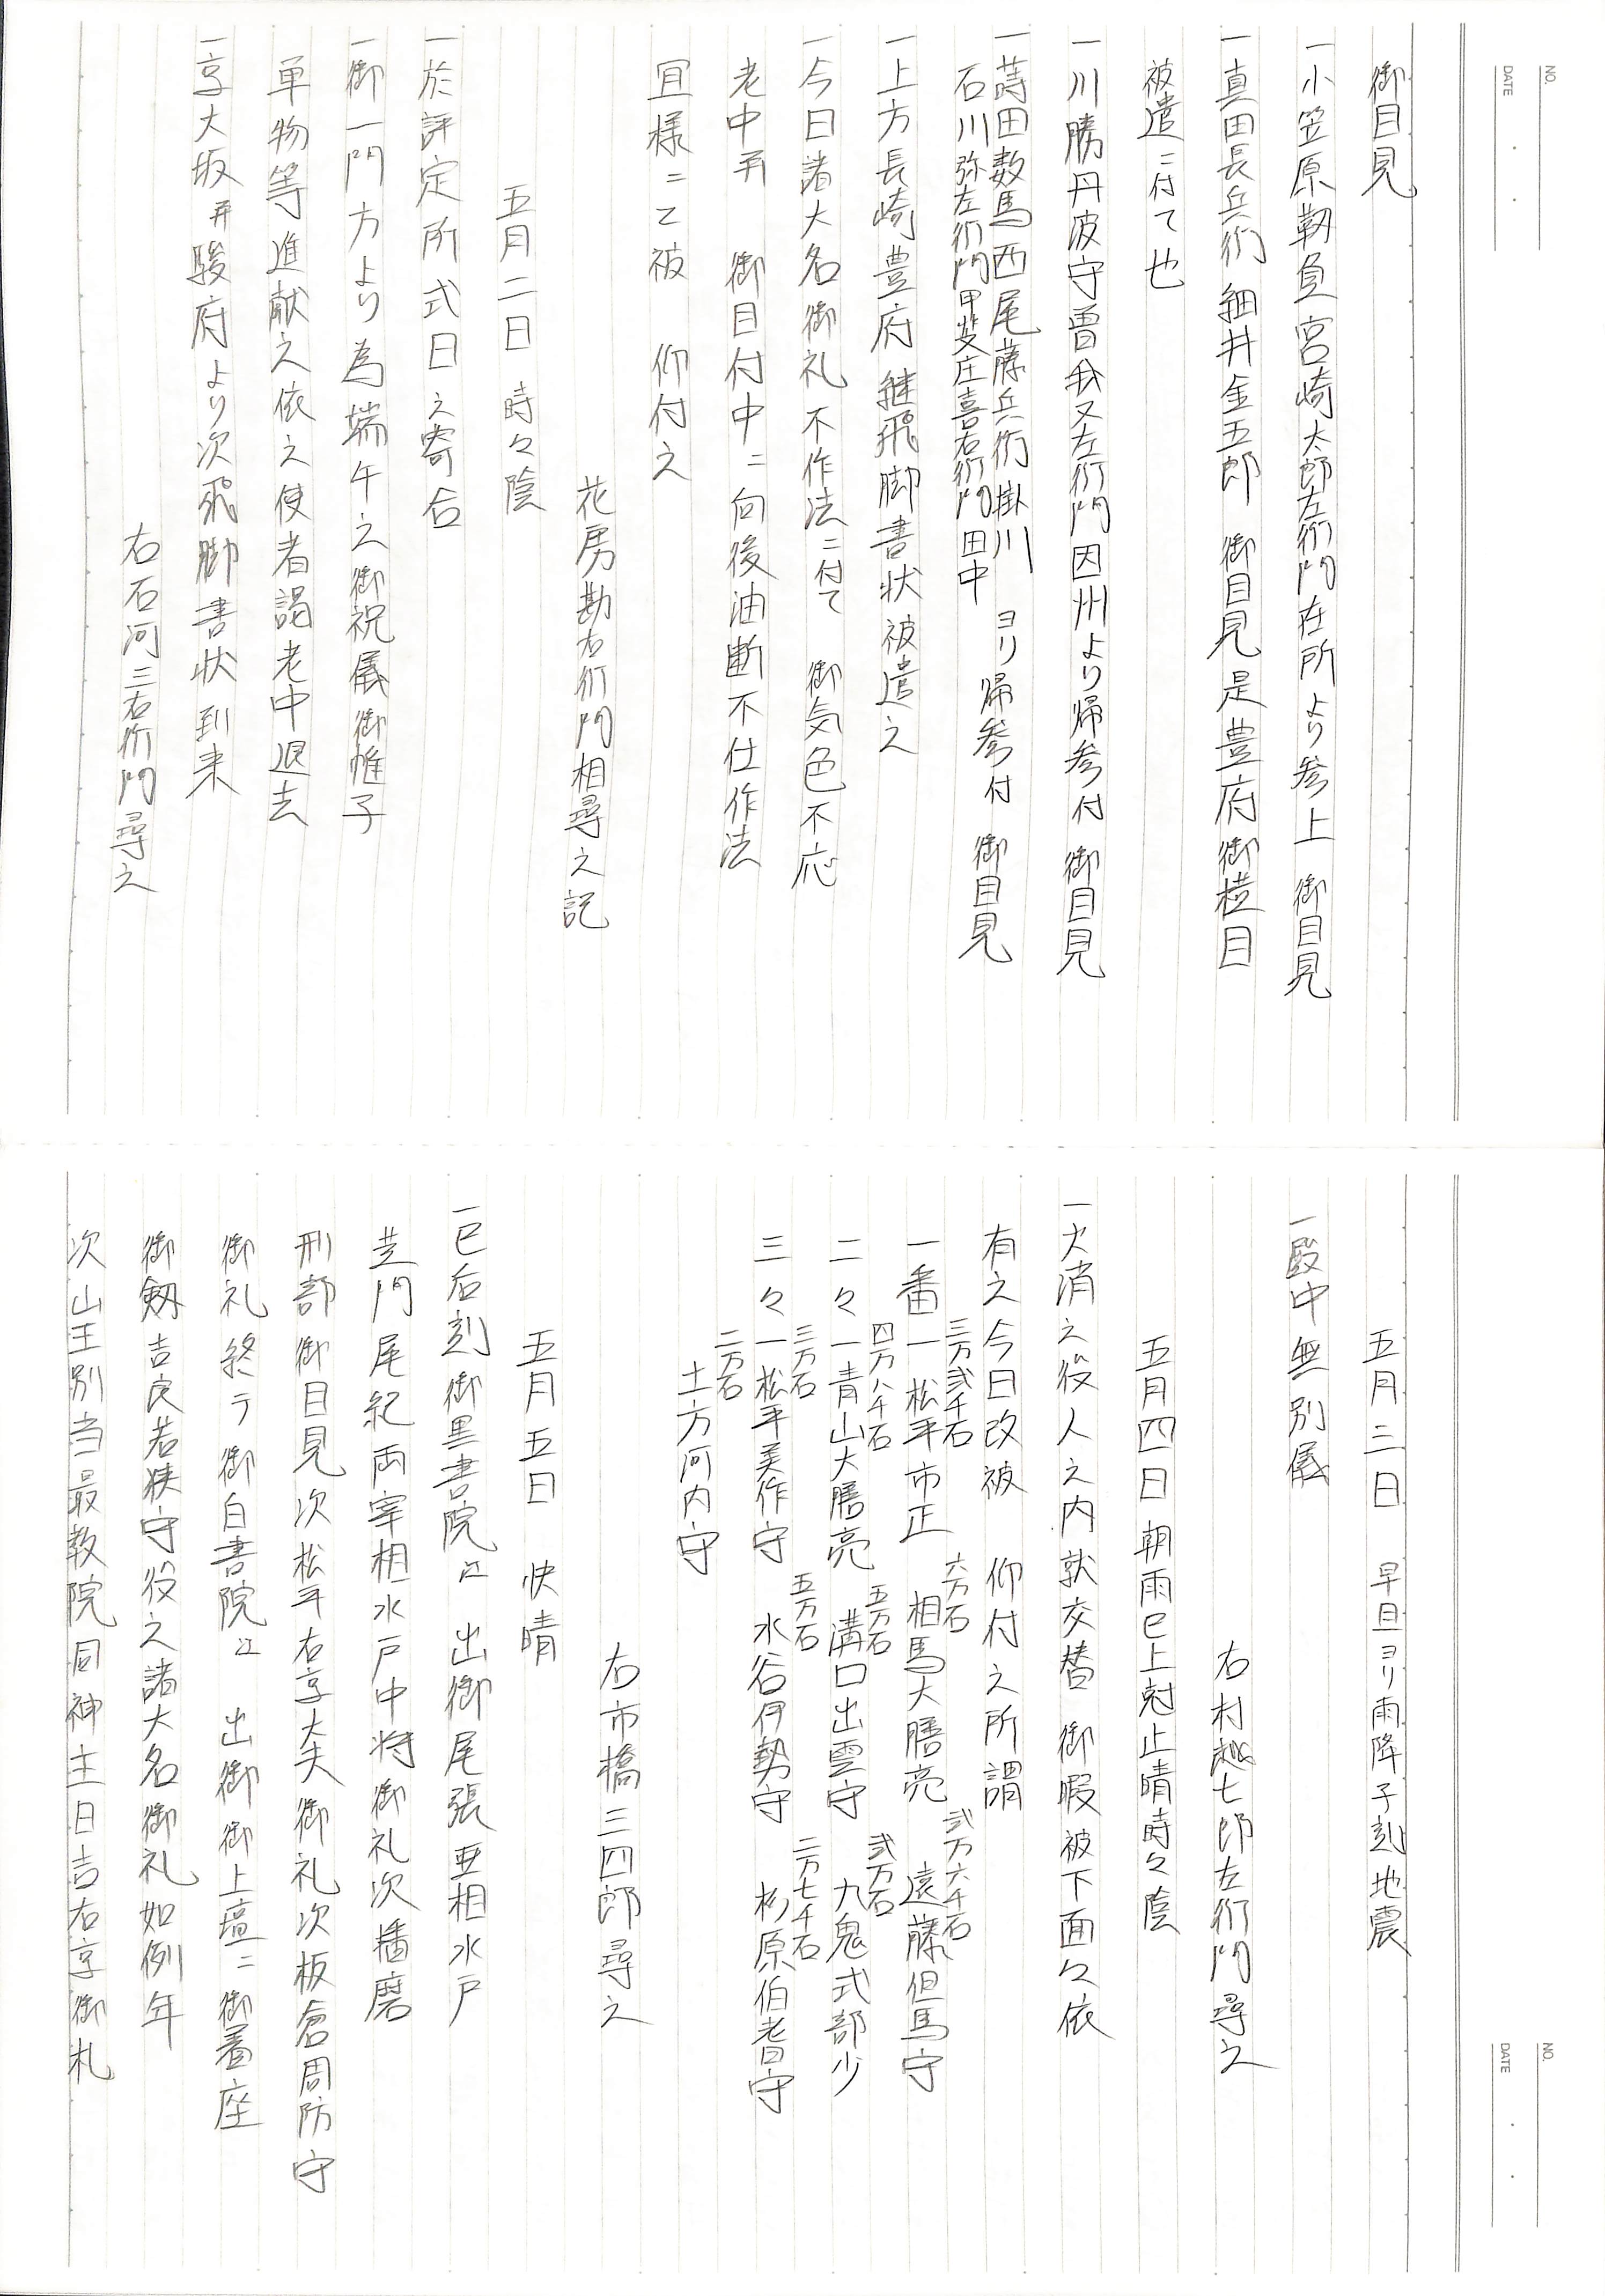 NO.
DATE
御目見
一小笠原靱負宮崎太郎左衛門在所より参上 御目見
一真田長兵衛細井金五郎 御目見是豊府御横目
被遣ニ付て也
一川勝丹波守曽我又左衛門因州より帰参付 御目見
一蒔田数馬西尾藤兵衛掛川
石川弥左衛門甲斐庄喜右衛門田中
ヨリ帰参付 御目見
一上方長崎豊府継飛脚書状被遣之
一今日諸大名御礼不作法ニ付て 御気色不応
老中并 御目付中ニ向後油断不仕作法
宜様ニて被 仰付之
花房勘右衛門相尋之記
五月二日 時々陰
一於評定所式日之寄合
一御一門方より為端午之御祝儀御帷子
単物等進献之依之使者謁老中退去
一京大坂并駿府より次飛脚書状到来
右石河三右衛門尋之
NO.
DATE
五月三日 早旦ヨリ雨降子刻地震
一殿中無別儀
右村越七郎左衛門尋之
五月四日 朝雨巳上尅止晴時々陰
一火消之役人之内就交替 御暇被下面々依
有之今日改被 仰付之所謂
三万弐千石 六万石 弐万六千石
一番一松平市正 相馬大膳亮 遠藤但馬守
四万八千石 五万石 弐万石
二々一青山大膳亮 溝口出雲守 九鬼式部少
三万石 五万石 二万七千石
三々一松平美作守 水谷伊勢守 杉原伯耆守
二万石
土方河内守
右市橋三四郎尋之
五月五日 快晴
一巳后刻御黒書院江 出御尾張亜相水戸
黄門尾紀両宰相水戸中将御礼次播磨
刑部御目見次松平右京大夫御礼次板倉周防守
御礼終テ御白書院江 出御御上壇ニ御着座
御剱吉良若狭守役之諸大名御礼如例年
次山王別当最教院同神主日吉右京御札